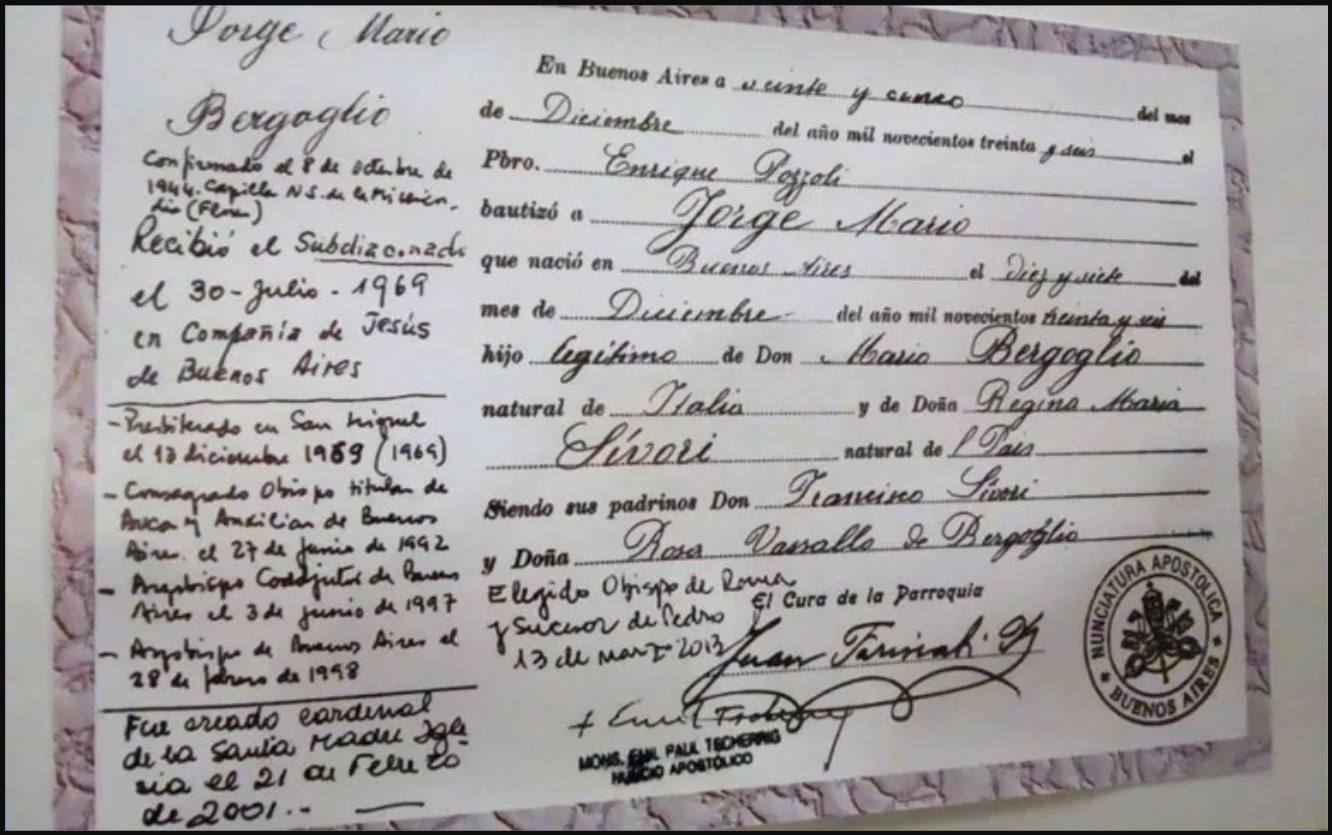 Jorge Mario
Bergoglio
Confirmado el 8 de octubre de
1944. Capilla N.S. de la Misericor-
dia (Flores)
Recibió el Subdiaconado
el 30-Julio-1969
en Compañía de Jesús
de Buenos Aires
- Presbiterado en San Miguel
el 13 diciembre 1969 (1969)
- Consagrado Obispo titular de
Auca y Auxiliar de Buenos
Aires. el 27 de junio de 1992
- Arzobispo Coadjutor de Buenos
Aires el 3 de junio de 1997
- Arzobispo de Buenos Aires el
28 de febrero de 1998
Fue creado cardenal
de la Santa Madre Igle-
sia el 21 de Febrero
de 2001.-
En Buenos Aires a veinte y cinco del mes
de Diciembre del año mil novecientos treinta y seis el
Pbro. Enrique Pozzoli
bautizó a Jorge Mario
que nació en Buenos Aires el diez y siete del
mes de Diciembre del año mil novecientos treinta y seis
hijo legítimo de Don Mario Bergoglio
natural de Italia y de Doña Regina Maria
Sívori natural de l País
Siendo sus padrinos Don Francisco Sívori
y Doña Rosa Vassallo de Bergoglio
Elegido Obispo de Roma
y Sucesor de Pedro
13 de marzo 2013
El Cura de la Parroquia
Juan
+ Emil
MONS. EMIL PAUL TSCHERRIG
NUNCIO APOSTÓLICO
NUNCIATURA APOSTOLICA
BUENOS AIRES